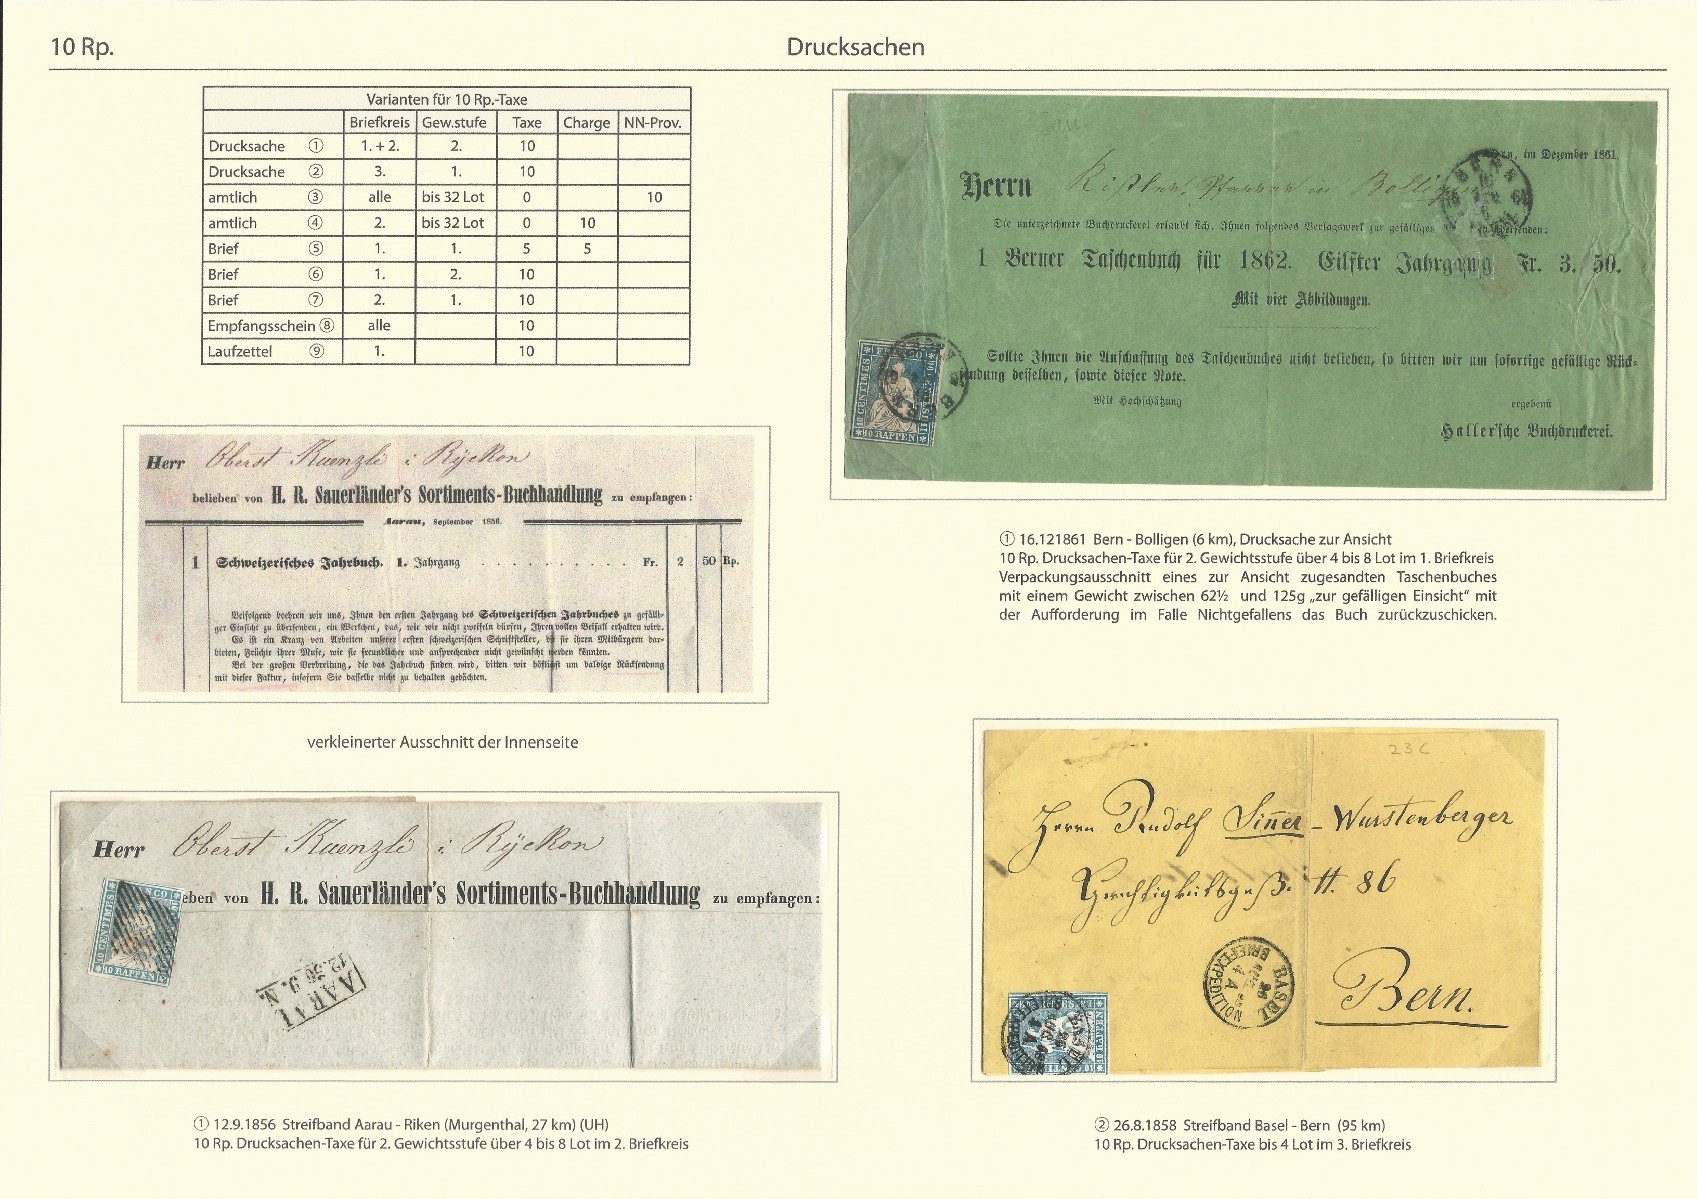 10 Rp.
Drucksachen
Varianten für 10 Rp.-Taxe
Briefkreis Gew.stufe Taxe Charge NN-Prov.
Drucksache ① 1. + 2. 2. 10
Drucksache ② 3. 1. 10
amtlich ③ alle bis 32 Lot 0 10
amtlich ④ 2. bis 32 Lot 0 10
Brief ⑤ 1. 1. 5 5
Brief ⑥ 1. 2. 10
Brief ⑦ 2. 1. 10
Empfangsschein ⑧ alle 10
Laufzettel ⑨ 1. 10
Herr Oberst Kuenzli i Rÿckon
belieben von H. R. Sauerländer's Sortiments-Buchhandlung zu empfangen:
Aarau, September 1856.
1 Schweizerisches Jahrbuch. 1. Jahrgang . . . . . . . . . . Fr. 2 50 Rp.
Beifolgend beehren wir uns, Ihnen den ersten Jahrgang des Schweizerischen Jahrbuches zu gefälli-
ger Einsicht zu übersenden, ein Werkchen, das, wie wir nicht zweifeln dürfen, Ihren vollen Beifall erhalten wird.
Es ist ein Kranz von Arbeiten unserer ersten schweizerischen Schriftsteller, die sie ihren Mitbürgern dar-
bieten, Früchte ihrer Muse, wie sie freundlicher und ansprechender nicht gewünscht werden könnten.
Bei der großen Verbreitung, die das Jahrbuch finden wird, bitten wir höflichst um baldige Rücksendung
mit dieser Faktur, insofern Sie dasselbe nicht zu behalten gedächten.
verkleinerter Ausschnitt der Innenseite
Herr Oberst Kuenzli i Rÿckon
eben von H. R. Sauerländer's Sortiments-Buchhandlung zu empfangen:
10 CENTIMES
10 RAPPEN
AARAU
① 12.9.1856 Streifband Aarau - Riken (Murgenthal, 27 km) (UH)
10 Rp. Drucksachen-Taxe für 2. Gewichtsstufe über 4 bis 8 Lot im 2. Briefkreis
im Dezember 1861.
Herrn Kistler, Pfarrer in Bolligen
Die unterzeichnete Buchdruckerei erlaubt sich, Ihnen folgendes Verlagswerk zur gefälligen
1 Berner Taschenbuch für 1862. Eilfter Jahrgang Fr. 3. 50.
Mit vier Abbildungen.
Sollte Ihnen die Anschaffung des Taschenbuches nicht belieben, so bitten wir um sofortige gefällige Rück-
sendung desselben, sowie dieser Note.
Mit Hochschätzung
ergebenst
Haller'sche Buchdruckerei.
10 CENTIMES
10 RAPPEN
BERN
① 16.121861 Bern - Bolligen (6 km), Drucksache zur Ansicht
10 Rp. Drucksachen-Taxe für 2. Gewichtsstufe über 4 bis 8 Lot im 1. Briefkreis
Verpackungsausschnitt eines zur Ansicht zugesandten Taschenbuches
mit einem Gewicht zwischen 62½ und 125g „zur gefälligen Einsicht" mit
der Aufforderung im Falle Nichtgefallens das Buch zurückzuschicken.
23 C
Herrn Rudolf Siñer - Wurstenberger
Gerechtigkeitsgaß. # 86
Bern.
BASEL
BRIEFEXPEDITION
② 26.8.1858 Streifband Basel - Bern (95 km)
10 Rp. Drucksachen-Taxe bis 4 Lot im 3. Briefkreis